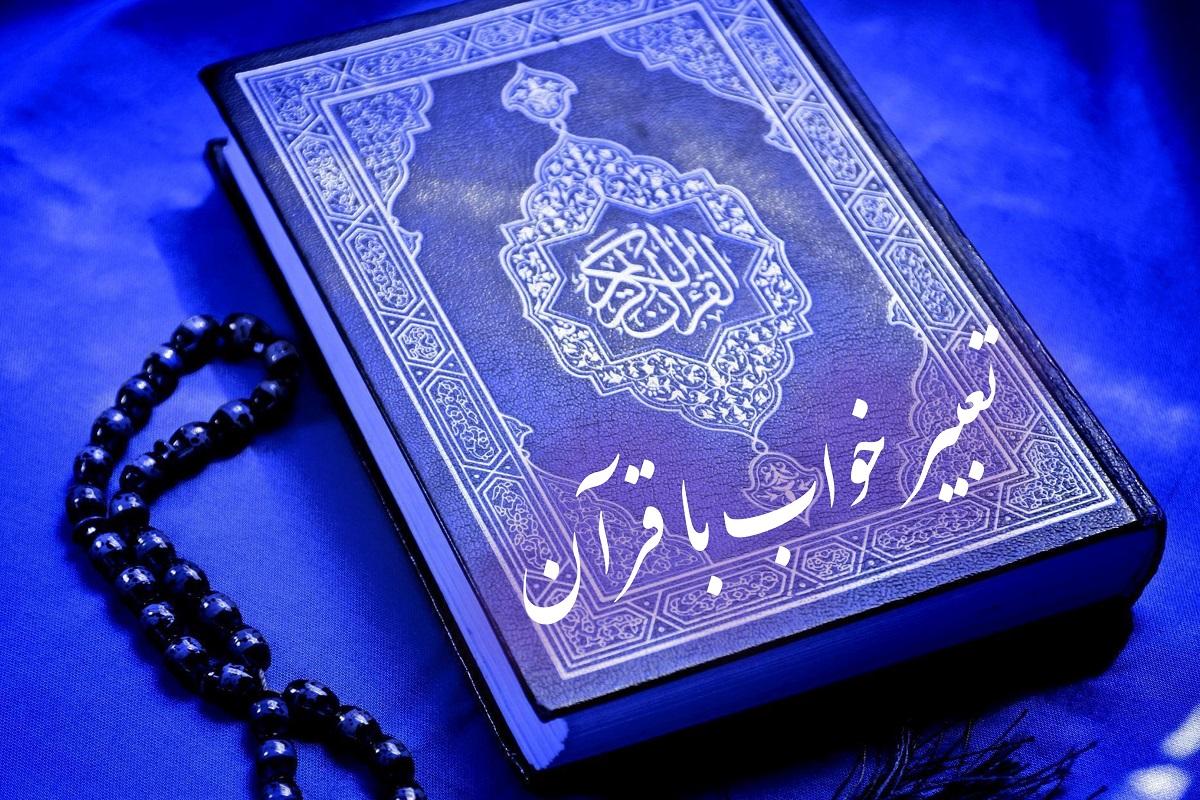 القرآن الكريم
تعبیر خواب با قرآن